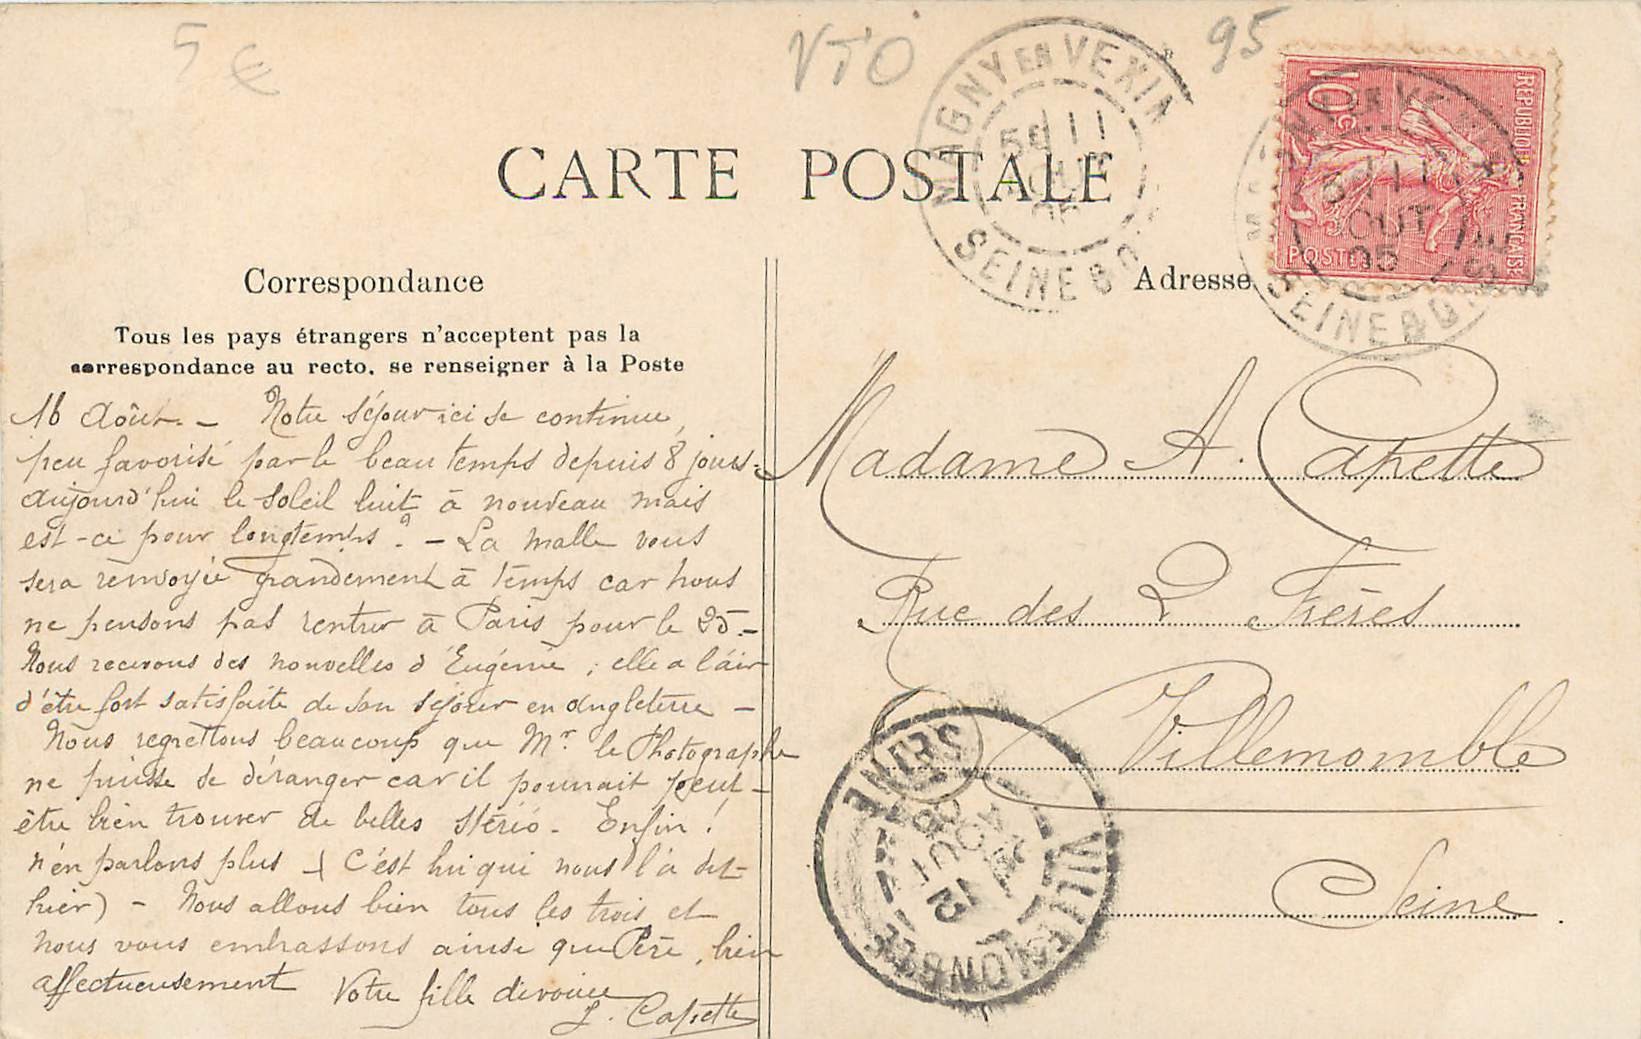 5 €
VTO
95
MAGNY EN VEXIN
11
AOUT
05
SEINE & O
10c
REPUBLIQUE FRANÇAISE
POSTES
11
AOUT
05
SEINE & O
CARTE POSTALE
Correspondance
Tous les pays étrangers n'acceptent pas la
correspondance au recto, se renseigner à la Poste
16 Août. - Notre séjour ici se continue,
peu favorisé par le beau temps depuis 8 jours.
aujourd'hui le soleil luit à nouveau mais
est-ce pour longtemps? - La malle vous
sera renvoyée grandement à temps car nous
ne pensons pas rentrer à Paris pour le 25.-
Nous recevons des nouvelles d'Eugénie ; elle a l'air
d'être fort satisfaite de son séjour en Angleterre -
Nous regrettons beaucoup que Mr. le Photographe
ne puisse se déranger car il pourrait peut-
être bien trouver de belles stéréo. Enfin !
n'en parlons plus (C'est lui qui nous l'a dit
hier) - Nous allons bien tous les trois et
nous vous embrassons ainsi que Père, bien
affectueusement Votre fille dévouée
L. Capette
Adresse
Madame A. Capette
Rue des 2 Frères
Villemomble
Seine.
VILLEMOMBLE
AOUT
SEINE